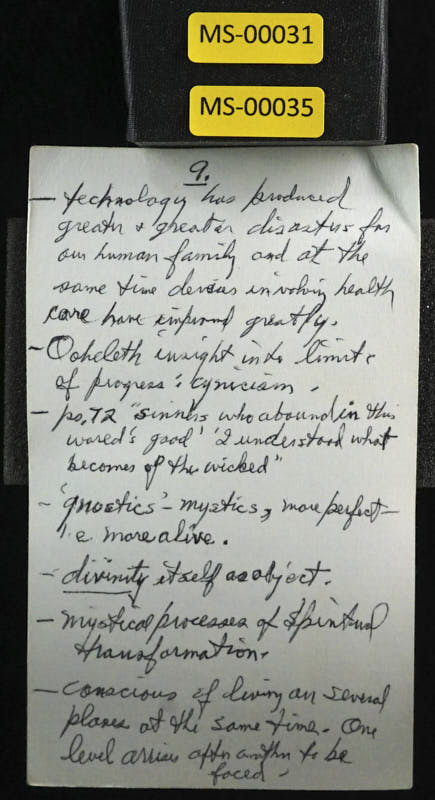 MS-00031
MS-00035
9.
— technology has produced
greater & greater disasters for
our human family and at the
same time devices involving health
care have improved greatly.
- Qoheleth insight into limits
of progress: cynicism.
- ps. 72 "sinners who abound in this
world's good' 'I understood what
becomes of the wicked"
- 'gnostics' - mystics, more perfect -
i.e. more alive.
- divinity itself as object.
- mystical processes of spiritual
transformation.
- conscious of living on several
planes at the same time. One
level arises after another to be
faced -